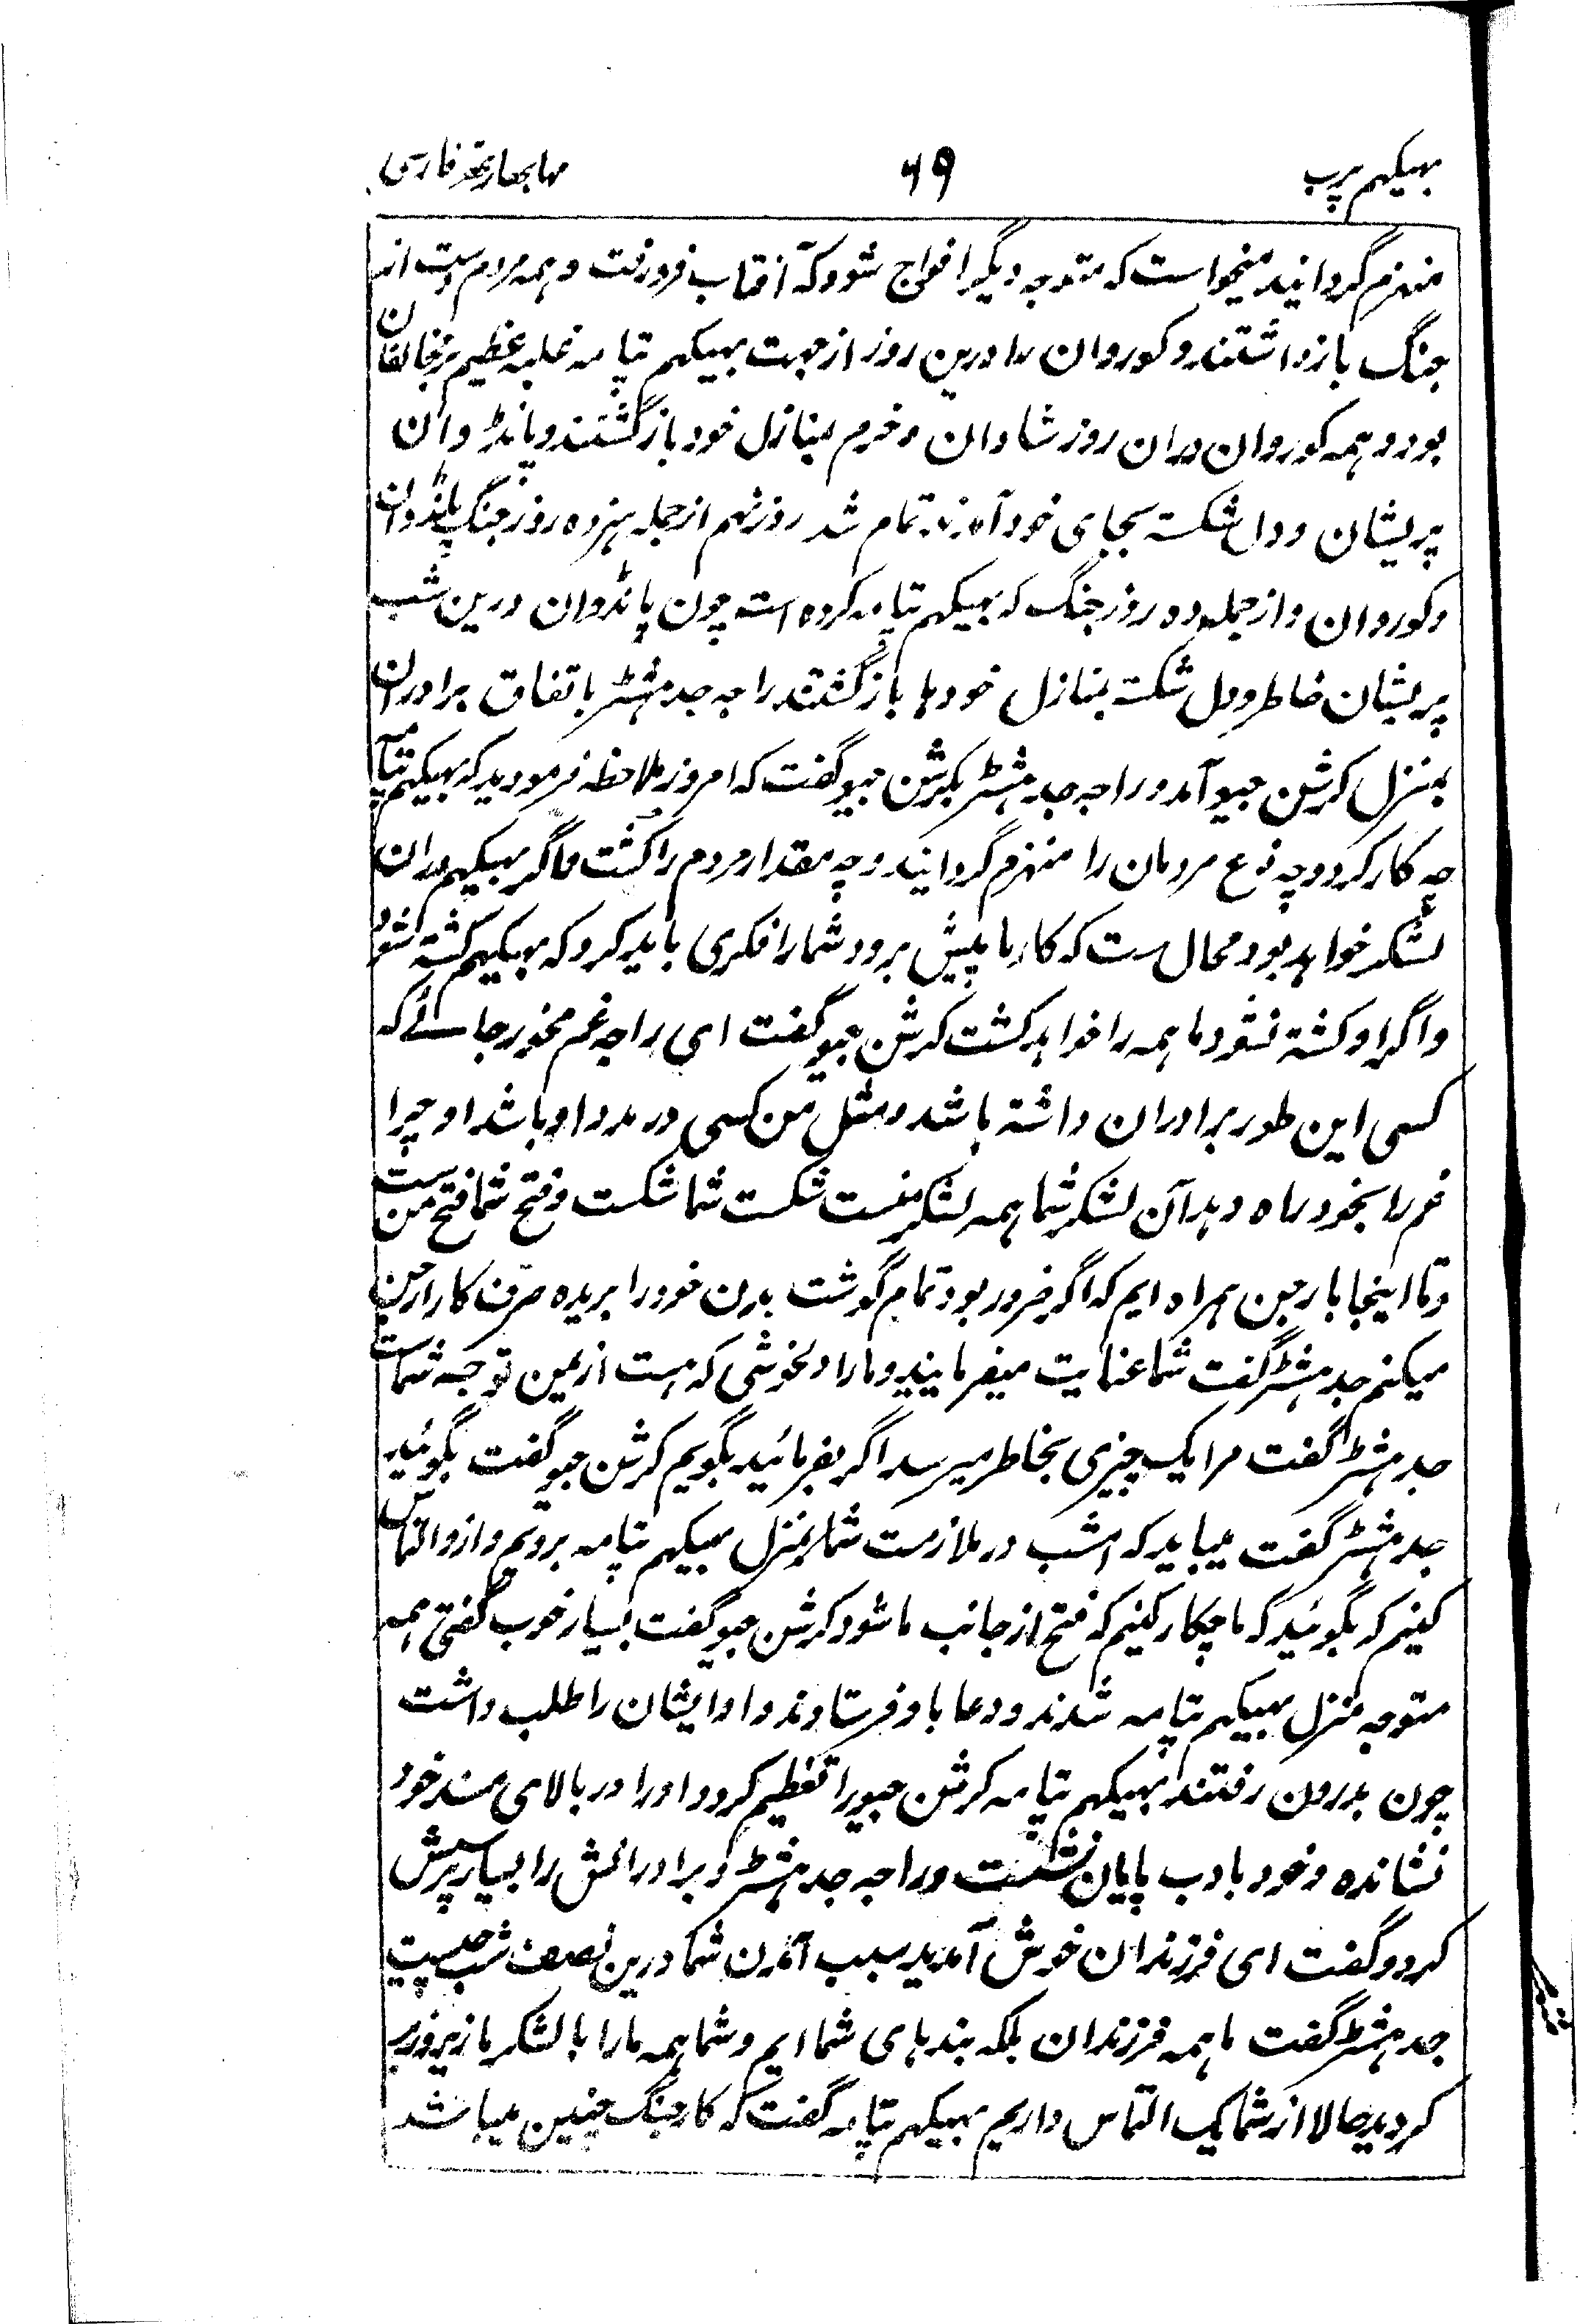 بهیکهم پرب ۶۹ مهابهارتهه فارسی
منهزم گردانید میخواست که متوجه دیگر افواج شود که آفتاب فرو رفت و همه مردم دست از
جنگ باز داشتند و کوروان را درین روز از جهت بهیکهم پتامه غلبه عظیم بر مخالفان
بود و همه کوروان دران روز شادان و خرم بمنازل خود باز گشتند و پانڈوان
پریشان و دل شکسته بجای خود آمدند تمام شد روز نهم از جمله هیزده روز جنگ پانڈوان
و کوروان و از جمله ده روز جنگ که بهیکهم پتامه کرده است چون پانڈوان درین شب
پریشان خاطر و دل شکسته بمنازل خودها باز گشتند راجه جدهشٹر باتفاق برادران
بمنزل کرشن جیو آمد و راجه جدهشٹر بکرشن جیو گفت که امروز ملاحظه فرمودید که بهیکهم پتامه
چه کار کرد و چه نوع مردمان را منهزم گردانید و چه مقدار مردم را کشت و اگر بهیکهم دران
لشکر خواهد بود محال ست که کار ما پیش برود شما را فکری باید کرد که بهیکهم کشته شود
و اگر او کشته نشود ما همه را خواهد کشت کرشن جیو گفت ای راجه غم مخور جائے که
کسی این طور برادران داشته باشد و مثل من کسی در مدد او باشد او چرا
غم را بخود راه دهد آن لشکر شما همه لشکر منست شکست شما شکست و فتح شما فتح من ست
و تا اینجا با رجن همراه ایم که اگر ضرور بود تمام گوشت بدن خود را بریده صرف کار ارجن
میکنم جدهشٹر گفت شما عنایت میفرمایید و ما را دلخوشی که هست از یمن توجه شماست
جدهشٹر گفت مرا یک چیزی بخاطر میرسد اگر بفرمائید بگویم کرشن جیو گفت بگوئید
جدهشٹر گفت میباید که امشب در ملازمت شما بمنزل بهیکهم پتامه برویم و ازو التماس
کنیم که بگوئید که ما چکار کنیم که فتح از جانب ما شود کرشن جیو گفت بسیار خوب گفتی همه
متوجه منزل بهیکهم پتامه شدند و دعا باو فرستادند و او ایشان را طلب داشت
چون بدرون رفتند بهیکهم پتامه کرشن جیو را تعظیم کرد و او را در بالای مسند خود
نشانده و خود بادب پایان نشست و راجه جدهشٹر و برادرانش را بسیار پرسش
کرد و گفت ای فرزندان خوش آمدید سبب آمدن شما درین نصف شب چیست
جدهشٹر گفت ما همه فرزندان بلکه بندهای شما ایم و شما همه ما را با لشکر ما زیر و زبر
کردید حالا از شما یک التماس داریم بهیکهم پتامه گفت که کار جنگ چنین میباشد